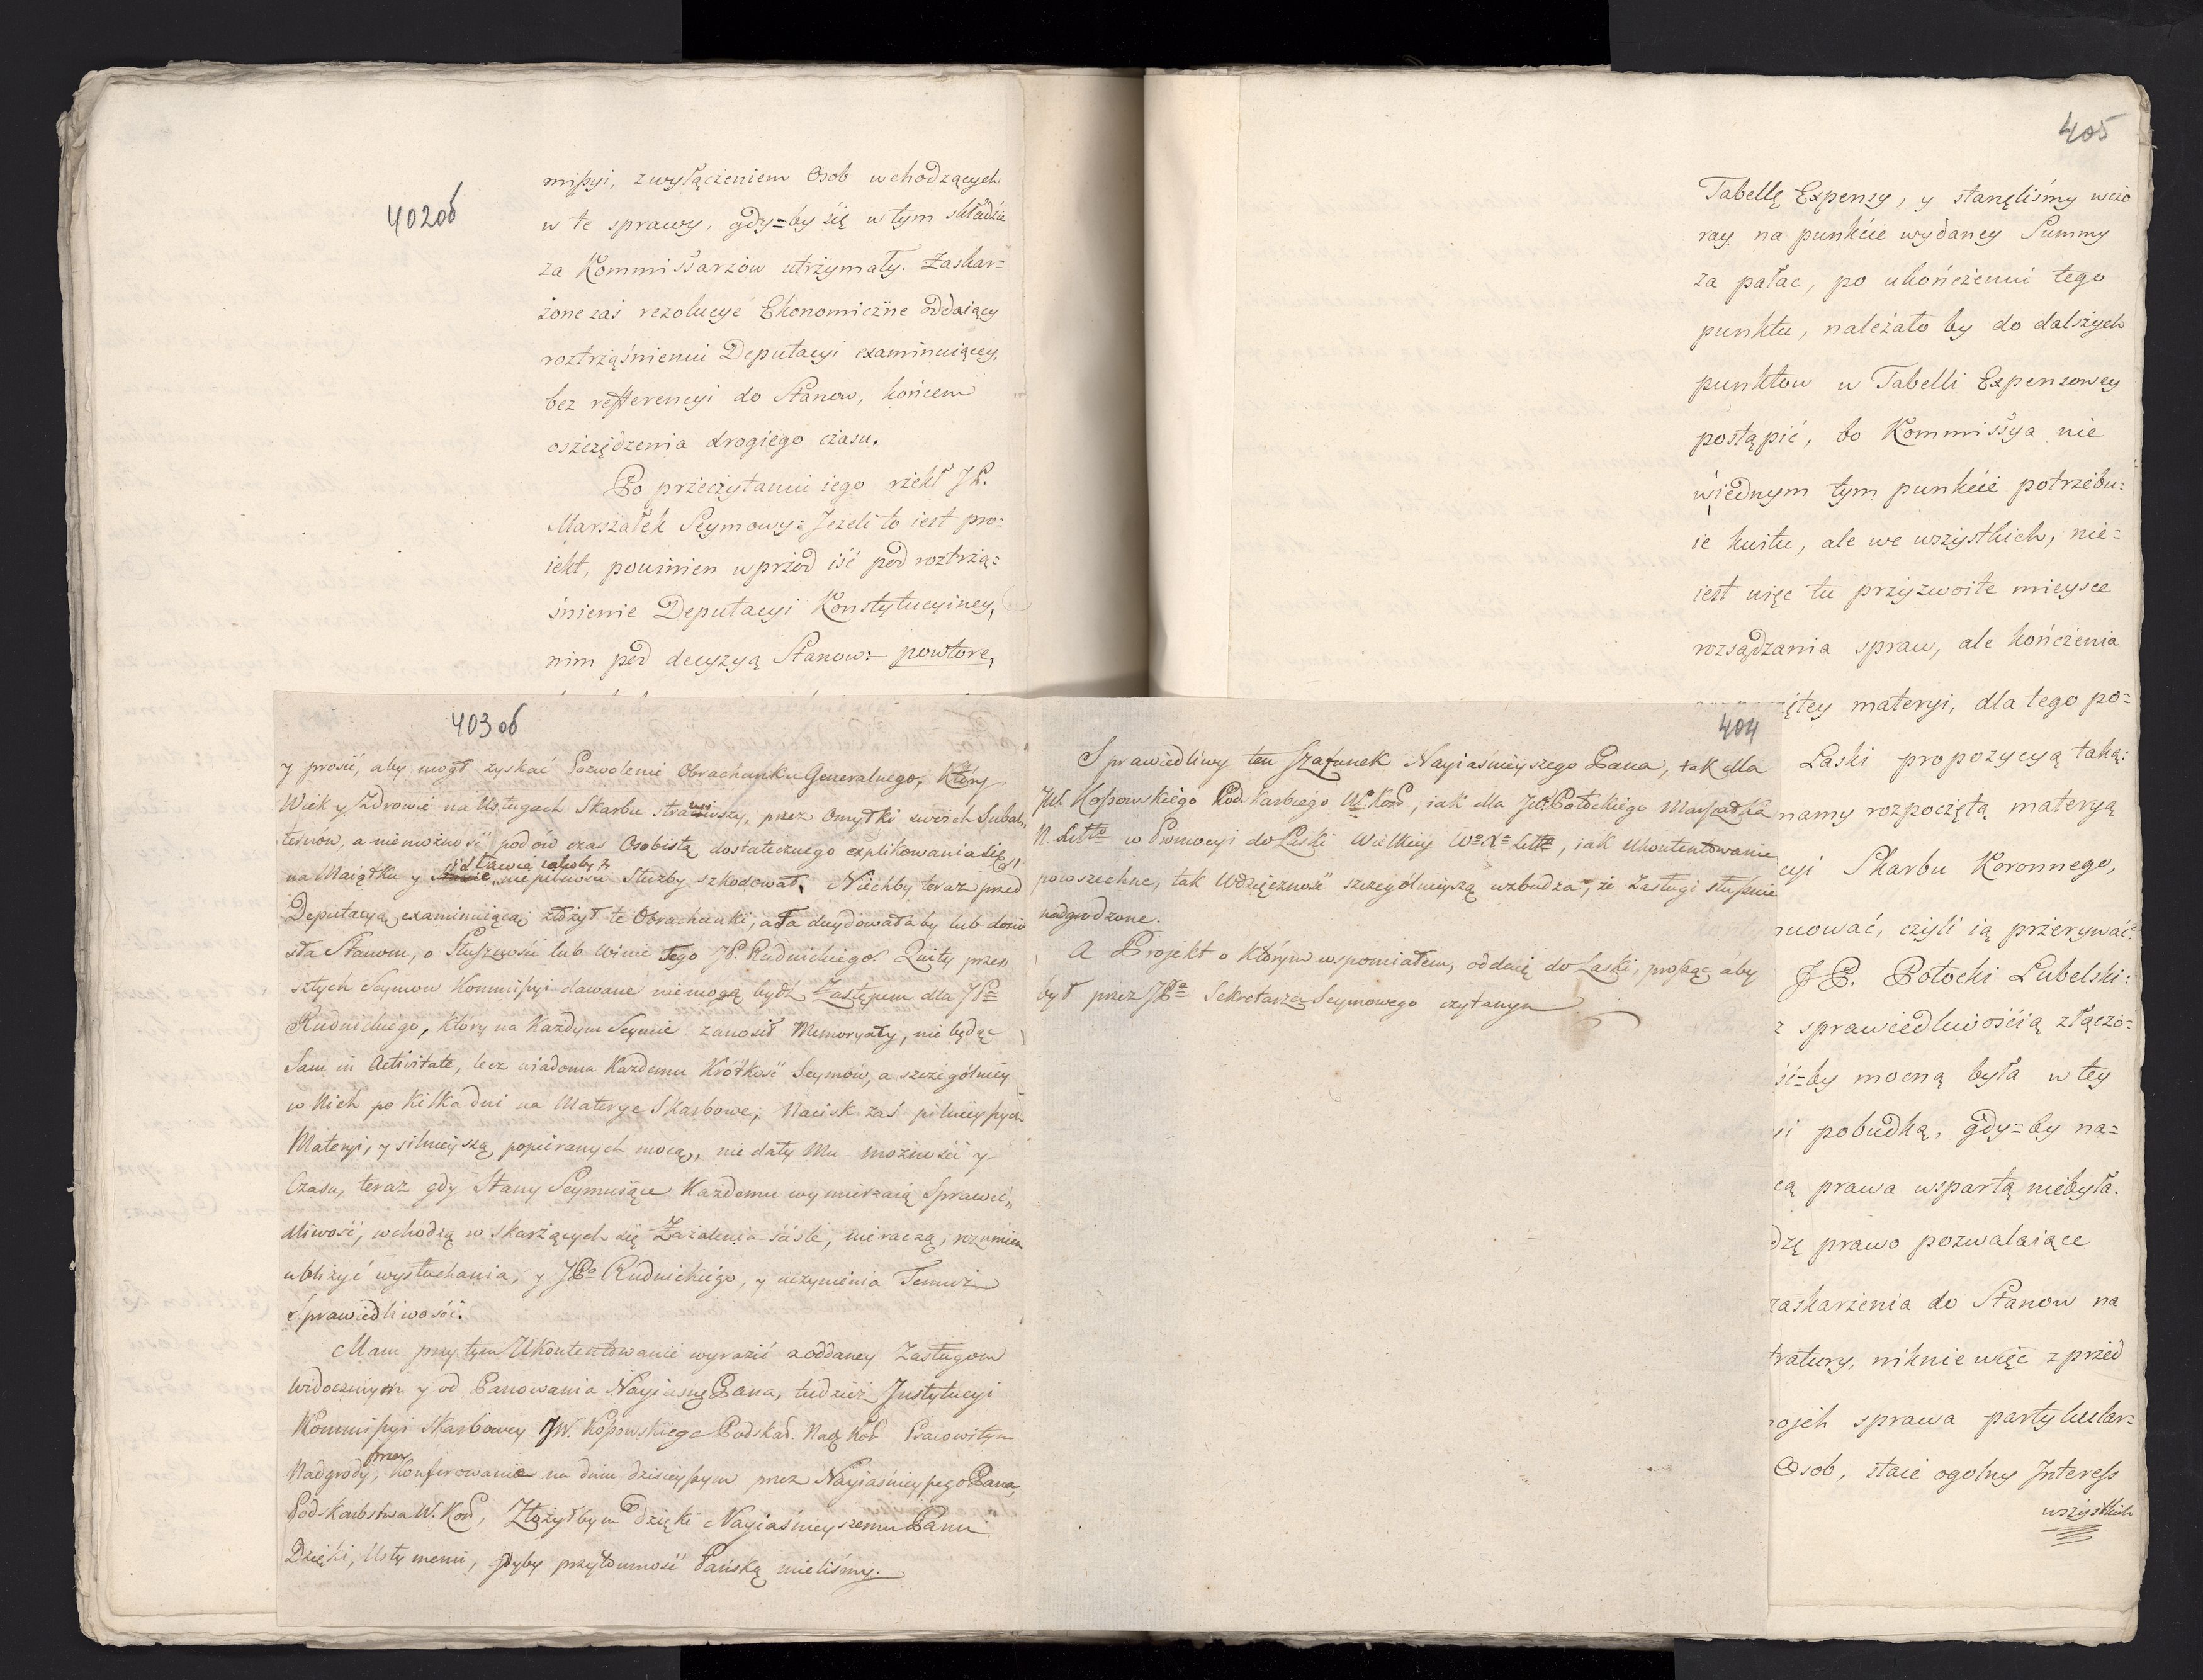 402об
mißyi, z wyłączeniem Osob wchodzących
w te sprawy, gdy=by się w tym składzie
za Kommissarzow utrzymały. Zaskar=
żone zaś rezolucye Ekonomiczne oddaiący
roztrząśnieniu Deputacyi examinuiącey,
bez refferencyi do Stanow, końcem
oszczędzenia drogiego czasu.
Po przeczytaniu iego rzekł JP.
Marszałek Seymowy: Jeżeli to iest pro=
iekt, powinien wprzód iść pod roztrzą=
śnienie Deputacyi Konstytucyiney,
nim pod decyzyą Stanow: powtore,
403об
y prosić, aby mógł zyskać Pozwolenie Obrachunku Generalnego, Który
Wiek y Zdrowie na Usługach Skarbu strawiwszy, przez Omyłki swoich Subal„
ternów, a niemożność pod ów czas Osobistą dostatecznego explikowania się,
na Maiątku y Sławie, iakoby nie pilności Służby szkodował. Niechby teraz przed
Deputacyą examinuiącą złożył te Obrachunki, a Ta decydowałaby lub donio
sła Stanom, o Słuszności lub Winie Tego JP. Rudnickiego. Quity przez
szłych Seymow Kommißyi dawane nie mogą bydź Zastępem dla JPa
Rudnickiego, Który na Każdym Seymie zanosił Memoryały, nie będąc
Sam in Activitate, lecz wiadoma Każdemu Krótkość Seymów, a szczegόlniey
w Nich po Kilka dni na Materye Skarbowe; Nacisk zaś pilnieyßych
Materyi, y silnieyszą popieranych mocą, nie dały Mu możności y
Czasu, teraz gdy Stany Seymuiące Każdemu wymierzaią Sprawie„
dliwość, wchodzą w skarżących się Zażalenia ściśle, nie raczą, rozumiem
ubliżyć wysłuchania, y JPo Rudnickiego, y uczynienia Temuż
sprawiedliwości.
Mam przy tym Ukontentowanie wyrazić z oddaney Zasługom
Widocznym y od Panowania Nayiasnego Pana, tudzież Instytucyi
Kommißyi Skarbowey JW. Koßowskiego Podskar. Nad. Kor Pracowitym
Nadgrody, przez Konferowanie na dniu dzisieyßym przez Nayiaśnieyßego Pana,
Podskarbstwa W. Kor, Złożyłbym Dzięki Nayiaśnieyszemu Panu
Dzięki, Usty memi, gdyby przytomność Pańską mieliśmy.
404
Sprawiedliwy ten szafunek Nayiaśnieyszego Pana, tak dla
JW. Koßowskiego Podskarbiego W. Kor, iak dla JW. Potockiego Marszałka
N. Litto w Promocyi do Laski Wielkiey Wo Xo Litto, iak Ukontentowanie
powszechne, tak Wdzięczność szczególnieyszą wzbudza, że Zasługi słusznie
nadgrodzone.
A Projekt o Którym wspomiałem, oddaię do Laski, prosząc aby
był przez JPo Sekretarza Seymowego czytanym
405
Tabellę Expensy, y stanęliśmy wczo
ray na punkcie wydaney Summy
za pałac, po ukończeniu tego
punktu, należało by do dalszych
punktow w Tabelli Expensowey
postąpić, bo Kommissya nie
w iednym tym punkcie potrzebu=
ie kwitu, ale we wszystkich, nie=
iest więc tu przyzwoite mieysce
rozsądzania spraw, ale kończenia
ętey materyi, dla tego po=
Laski propozycyą taką:
namy rozpoczętą materyą
cyi Skarbu Koronnego,
nuować, czyli ią przerywać:
J P. Potocki Lubelski:
z sprawiedliwością złączo=
ść=by mocną była w tey
si pobudką, gdy=by na=
cą prawa wspartą niebyła.
dzę prawo pozwalaiące
zaskarżenia do Stanow na
tratury, niknie więc z przed
ojch sprawa partykular=
Osob, staie ogolny Interess
wszystkich